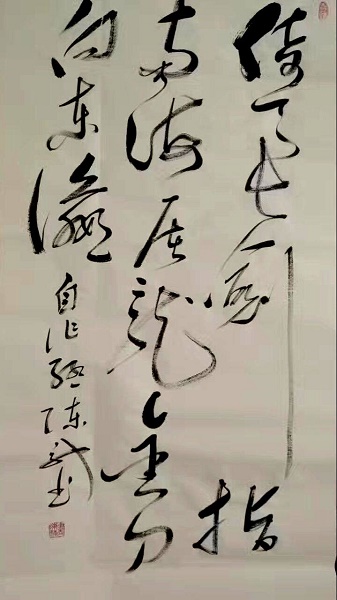 倚天长剑指
南海屠龙宝刀
向东瀛
自作联陈武书